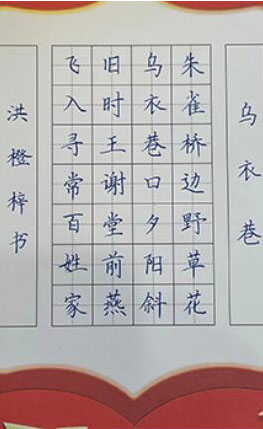 乌衣巷
朱雀桥边野草花
乌衣巷口夕阳斜
旧时王谢堂前燕
飞入寻常百姓家
洪橙梓书